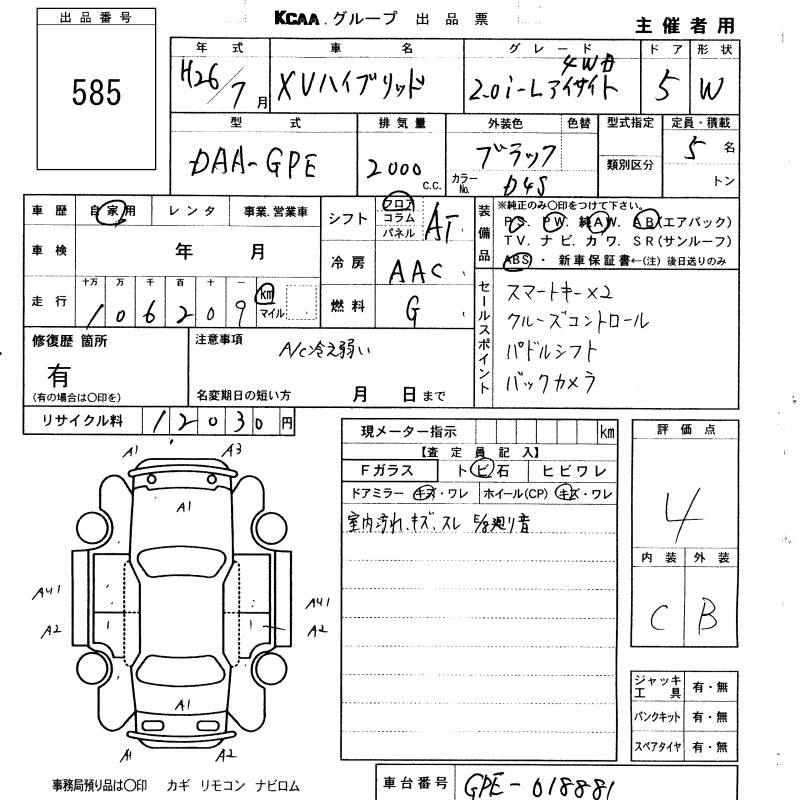 出品番号
585
KCAA.グループ 出品票
主催者用
年式 車名 グレード ドア 形状
H26/7月 XVハイブリッド 2.0i-Lアイサイト 4WD 5 W
型式 排気量 外装色 色替 型式指定 定員・積載
DAA-GPE 2000 C.C. ブラック 類別区分 5名
カラーNo. D4S トン
車歴 自家用 レンタ 事業.営業車
車検 年 月
走行 十万 万 千 百 十 一
106209 km マイル
シフト フロア コラム パネル AT
冷房 AAC
燃料 G
装備品
※純正のみ○印をつけて下さい。
PS. PW. 純AW. AB(エアバック)
TV. ナビ. カワ. SR(サンルーフ)
ABS ・ 新車保証書←(注) 後日送りのみ
セールスポイント
スマートキー×2
クルーズコントロール
パドルシフト
バックカメラ
修復歴 箇所
有
(有の場合は○印を)
注意事項
A/C冷え弱い
名変期日の短い方 月 日まで
リサイクル料 12030円
現メーター指示 km
【査定員記入】
Fガラス トビ石 ヒビワレ
ドアミラー キズ・ワレ ホイール(CP) キズ・ワレ
室内汚れ、キズ、スレ E/g廻り音
評価点
4
内装 外装
C B
A1 A3
A1
AU1 AU1
A2 A2
A1
A1 A2
ジャッキ工具 有・無
パンクキット 有・無
スペアタイヤ 有・無
事務局預り品は○印 カギ リモコン ナビロム
車台番号 GPE-018881